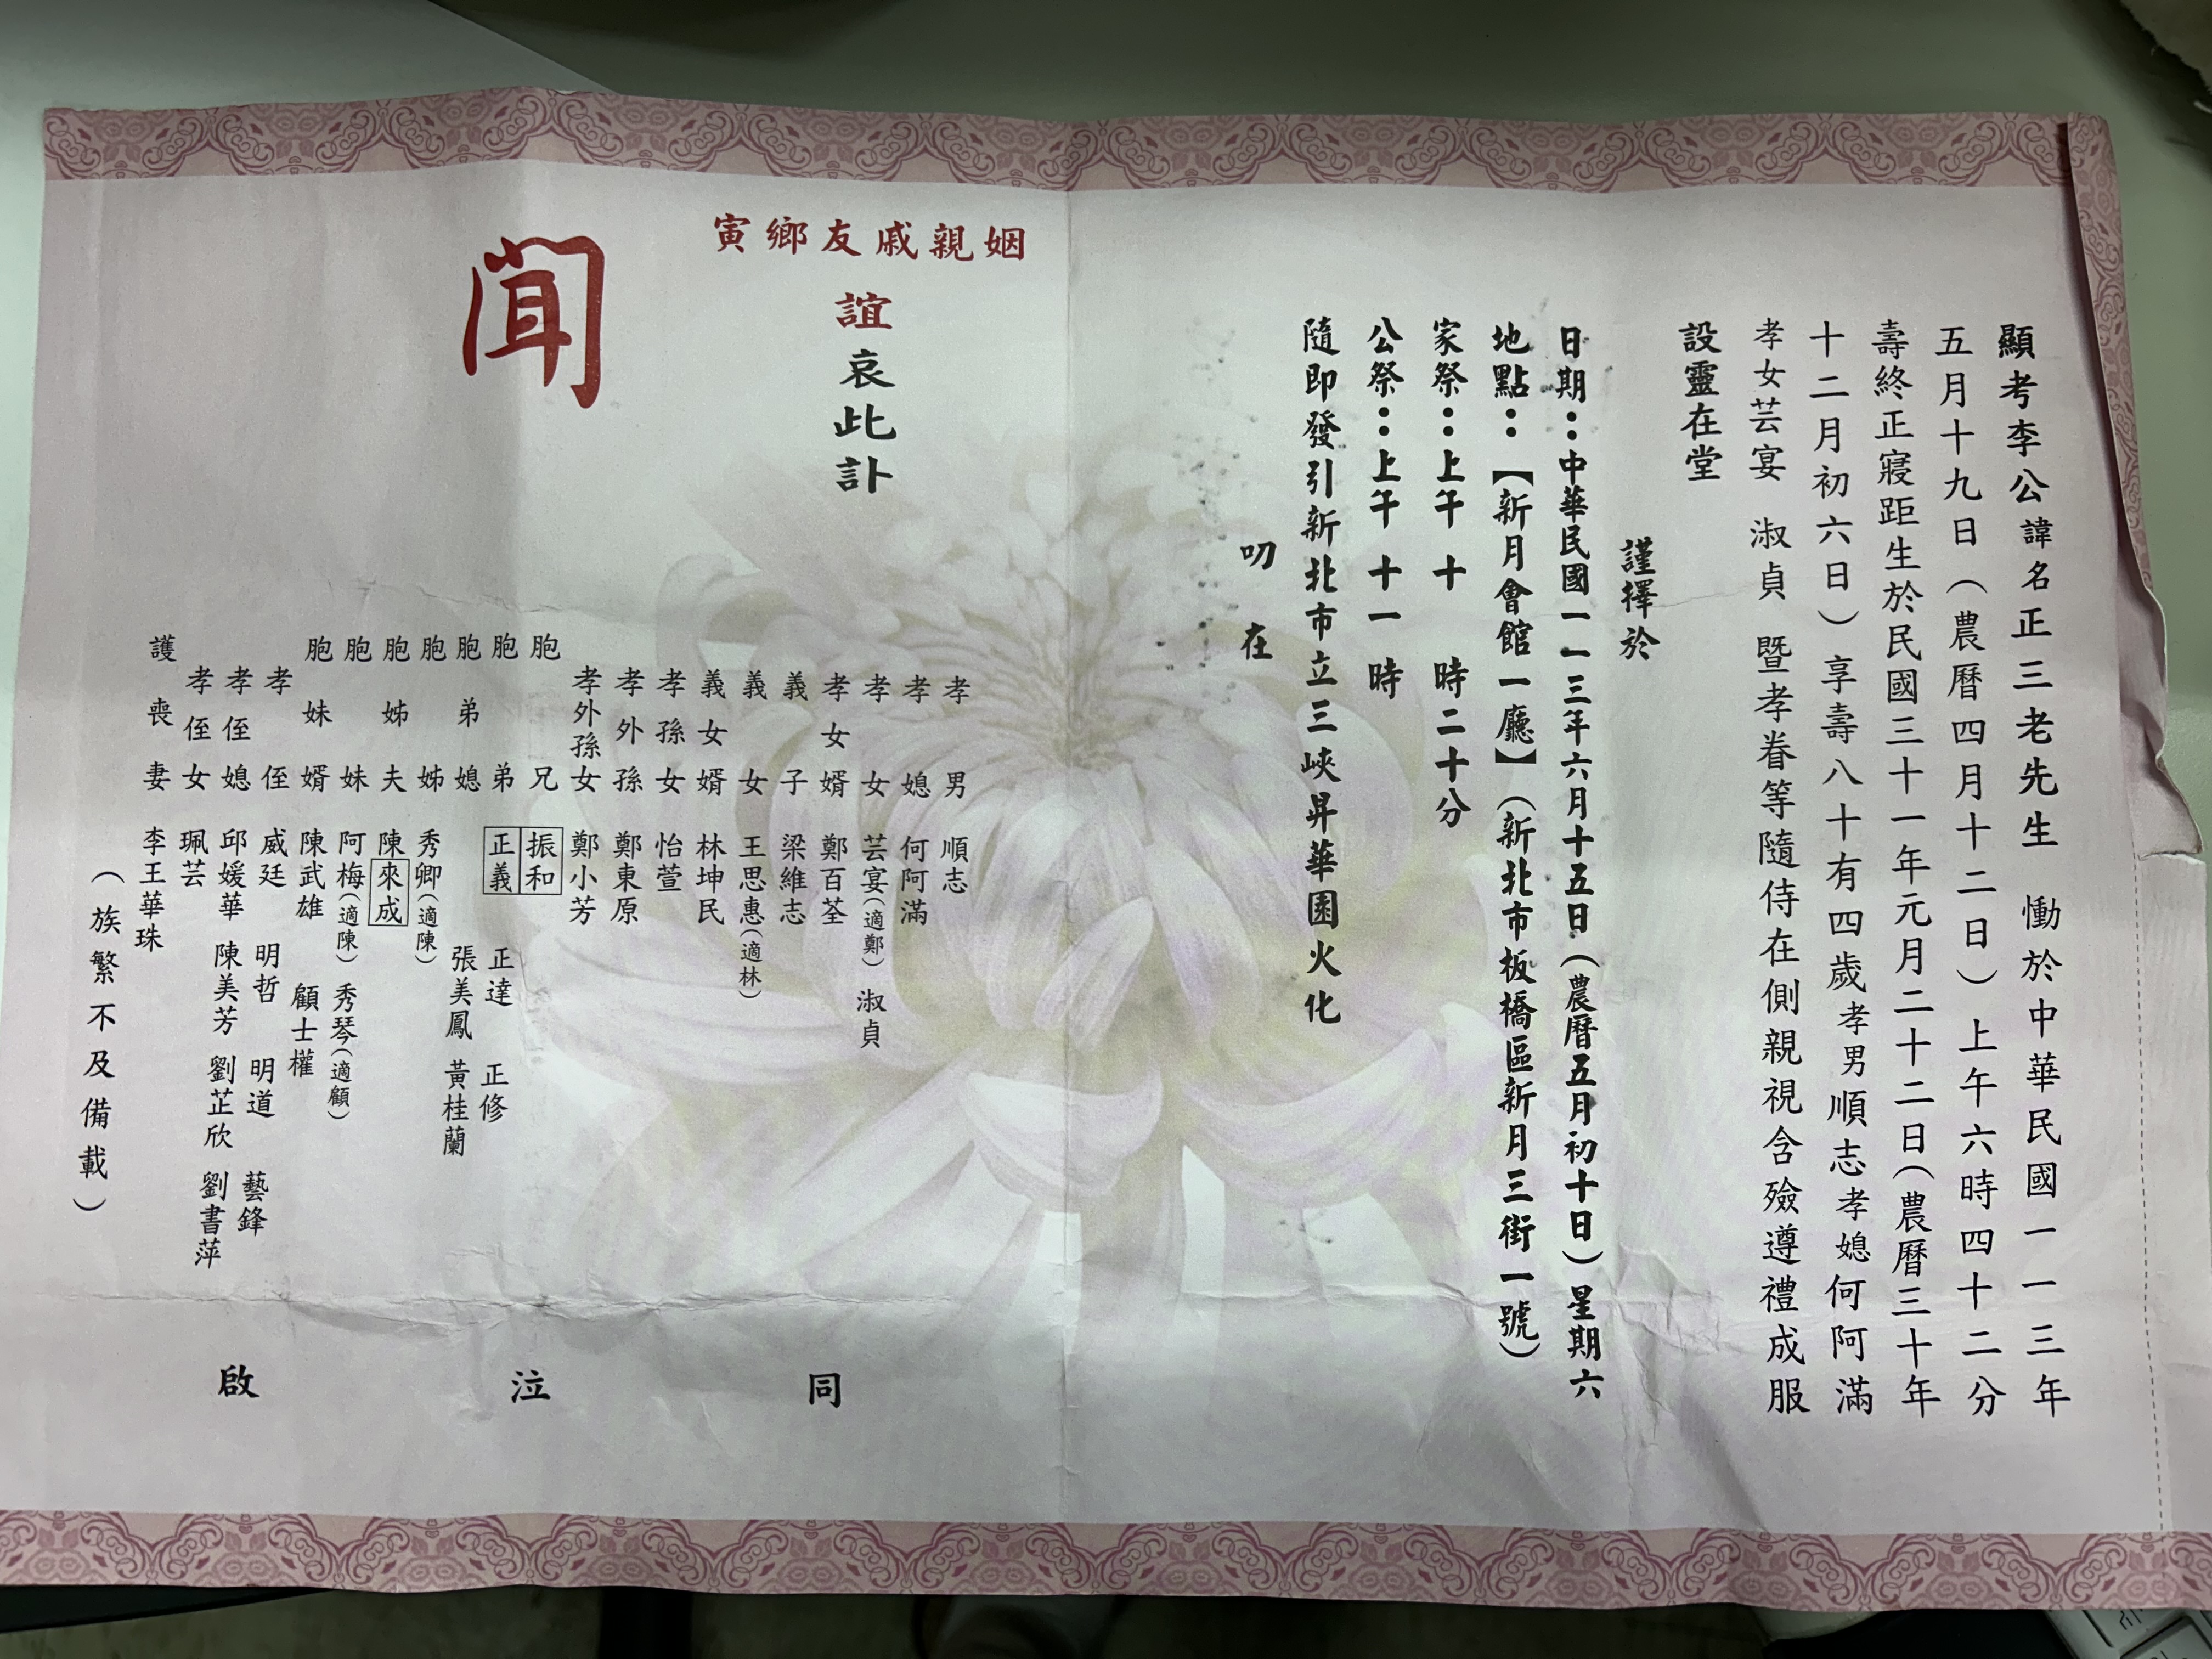 顯考李公諱名正三老先生　慟於中華民國一一三年
五月十九日（農曆四月十二日）上午六時四十二分
壽終正寢距生於民國三十一年元月二十二日（農曆三十年
十二月初六日）享壽八十有四歲孝男順志孝媳何阿滿
孝女芸宴　淑貞　暨孝眷等隨侍在側親視含殮遵禮成服
設靈在堂
謹擇於
日期：中華民國一一三年六月十五日（農曆五月初十日）星期六
地點：【新月會館一廳】（新北市板橋區新月三街一號）
家祭：上午　十　時二十分
公祭：上午　十一　時
隨即發引新北市立三峽昇華園火化
叨　在
姻親戚友鄉寅
誼哀此訃
聞
孝男　順志
孝媳　何阿滿
孝女　芸宴（適鄭）　淑貞
孝女婿　鄭百荃
義子　梁維志
義女　王思惠（適林）
義女婿　林坤民
孝孫女　怡萱
孝外孫　鄭東原
孝外孫女　鄭小芳
胞兄　振和
胞弟　正義　正達　正修
胞弟媳　張美鳳　黃桂蘭
胞姊　秀卿（適陳）
胞姊夫　陳來成
胞妹　阿梅（適陳）　秀琴（適顧）
胞妹婿　陳武雄　顧士權
孝侄　威廷　明哲　明道　藝鋒
孝侄媳　邱媛華　陳美芳　劉芷欣　劉書萍
孝侄女　珮芸
護喪妻　李王華珠
（族繁不及備載）
同　泣　啟